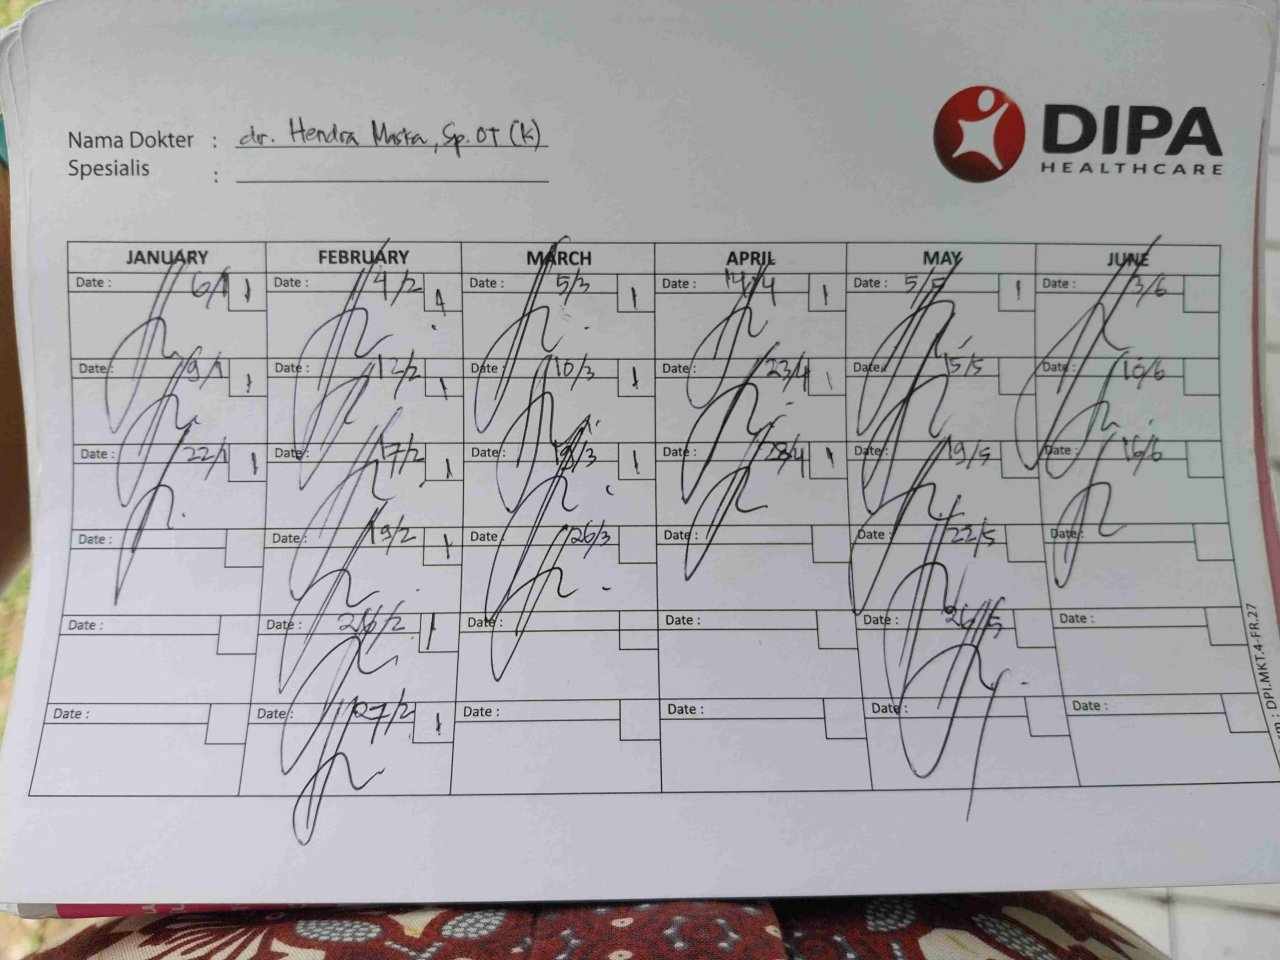 Nama Dokter : dr. Hendra Maska, Sp.OT (K)
Spesialis :
DIPA
HEALTHCARE
JANUARY FEBRUARY MARCH APRIL MAY JUNE
Date : 6/1 1 Date : 4/2 Date : 5/3 1 Date : 14/4 1 Date : 5/5 1 Date : 3/6
Date : 9/1 1 Date : 12/2 1 Date : 10/3 1 Date : 23/4 1 Date : 15/5 Date : 10/6
Date : 22/1 1 Date : 17/2 1 Date : 18/3 1 Date : 28/4 1 Date : 19/5 Date : 16/6
Date : Date : 19/2 1 Date : 26/3 Date : Date : 22/5 Date :
Date : Date : 26/2 1 Date : Date : Date : 26/5 Date :
Date : Date : 27/2 1 Date : Date : Date : Date :
: DPI.MKT.4-FR.27